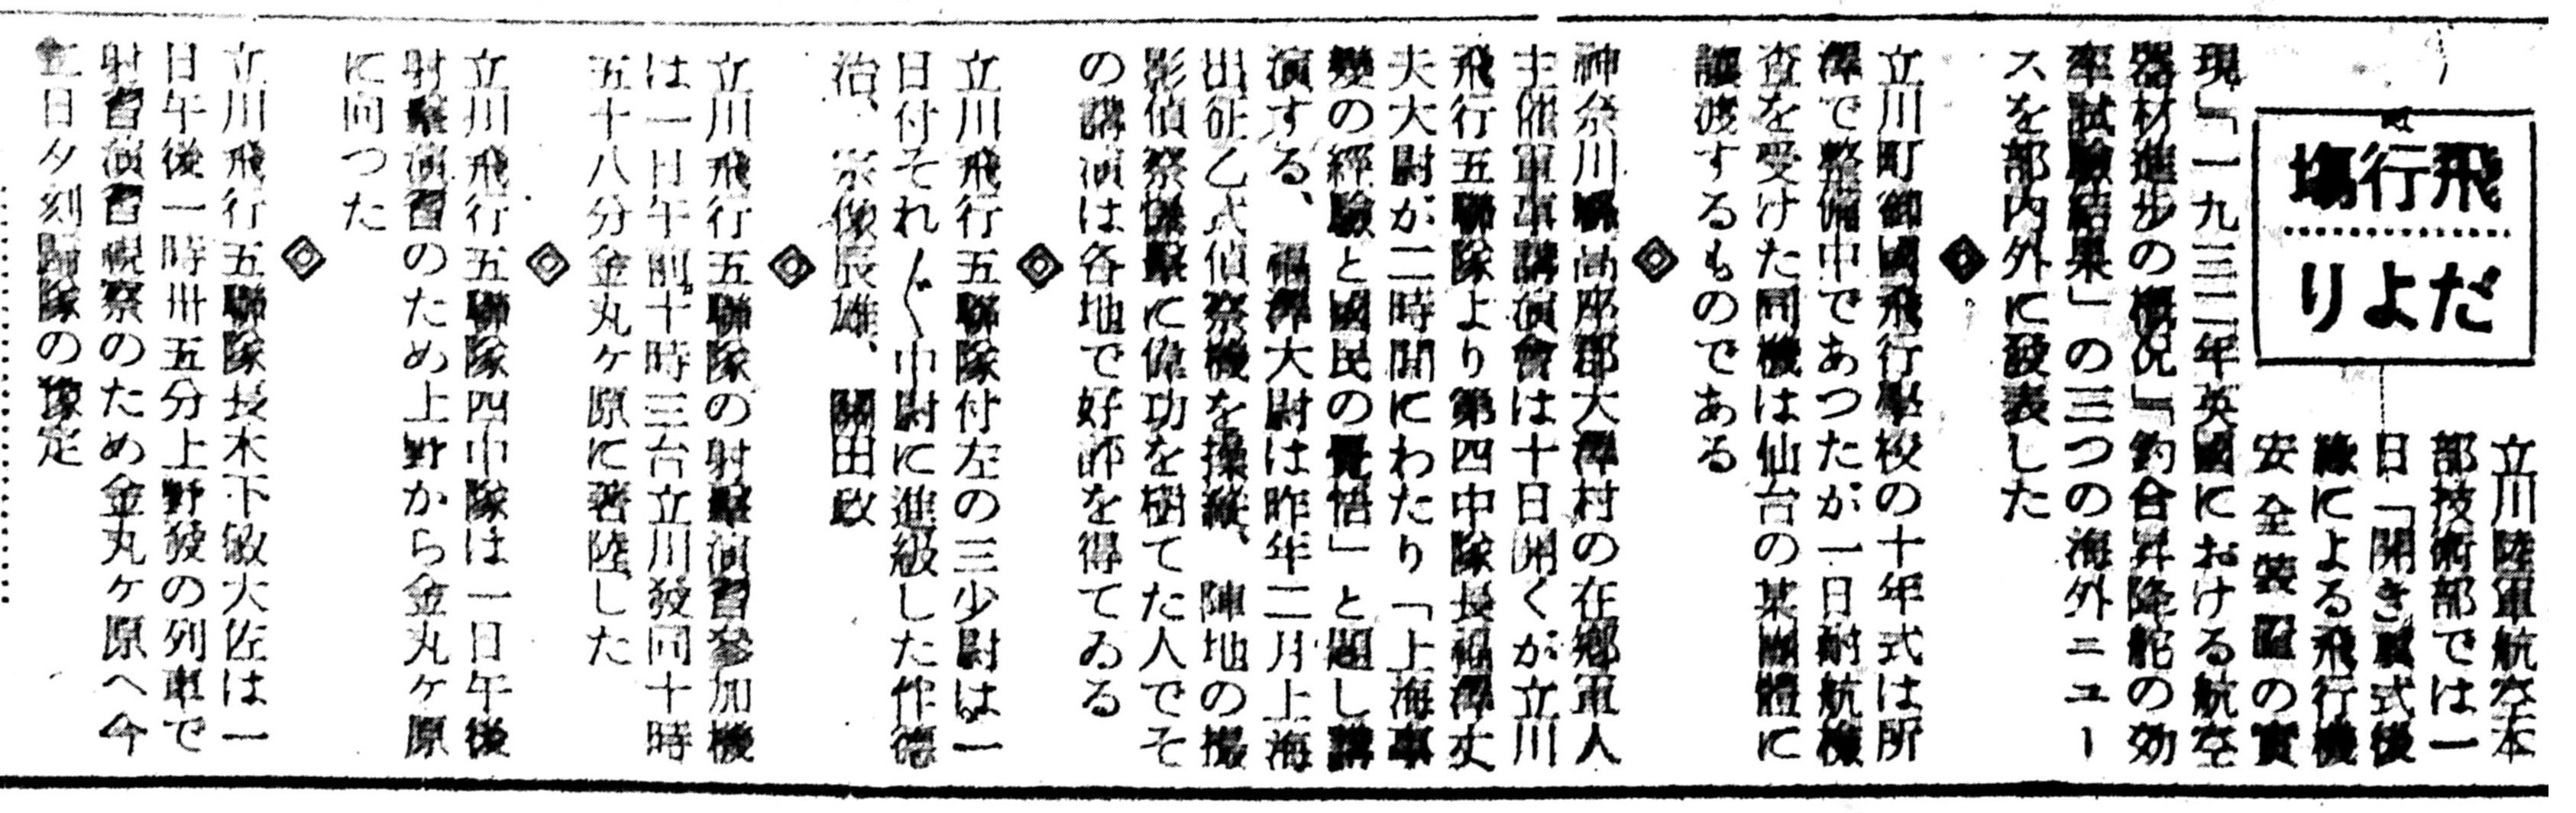 飛行場
だより
立川陸軍航空本
部技術部では一
日「開き翼式後
縁による飛行機
安全装置の實
現」「一九三二年英國における航空
器材進歩の概況」「釣合昇降舵の効
率試驗結果」の三つの海外ニュー
スを部内外に發表した
立川町御國飛行學校の十年式は所
澤で整備中であつたが一日耐航檢
査を受けた同機は仙台の某團體に
讓渡するものである
神奈川縣高座郡大澤村の在郷軍人
主催軍事講演會は十日開くが立川
飛行五聯隊より第四中隊長福澤丈
夫大尉が二時間にわたり「上海事
變の經驗と國民の覺悟」と題し講
演する、福澤大尉は昨年二月上海
出征乙式偵察機を操縱、陣地の撮
影偵察爆撃に偉功を樹てた人でそ
の講演は各地で好評を得てゐる
立川飛行五聯隊付左の三少尉は一
日付それ〴〵中尉に進級した作德
治、宗像辰雄、關田政
立川飛行五聯隊の射撃演習參加機
は一日午前十時三台立川發同十時
五十八分金丸ヶ原に著陸した
立川飛行五聯隊四中隊は一日午後
射撃演習のため上野から金丸ヶ原
に向つた
立川飛行五聯隊長木下敏大佐は一
日午後一時卅五分上野發の列車で
射撃演習視察のため金丸ヶ原へ今
三日夕刻歸隊の豫定